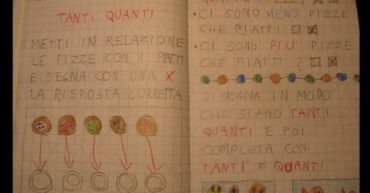 TANTI QUANTI
METTI IN RELAZIONE
LE PIZZE CON I PIATTI
E SEGNA CON UNA X
LA RISPOSTA CORRETTA
CI SONO MENO PIZZE
CHE PIATTI
CI SONO PIU' PIZZE
CHE PIATTI
DISEGNA IN MODO
CHE SIANO TANTI
QUANTI E POI
COMPLETA CON
TANTI E QUANTI